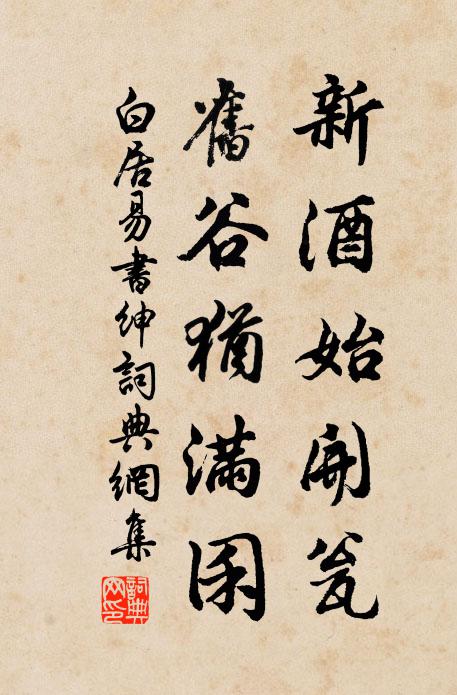 新酒始開瓮
舊谷猶滿囷
白居易書紳詞典網集
詞典网印